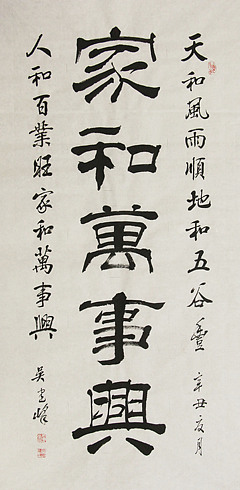 天和風雨順地和五谷豐
辛丑夏月
家和萬事興
人和百業旺家和萬事興